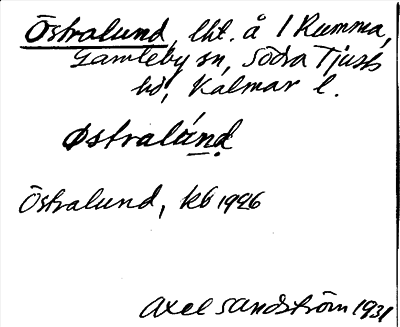 Östralund, lht. å 1 Rumma,
Gamleby sn, Södra Tjusts
hd, Kalmar l.
Østralúnd
Östralund, kb 1926
Axel Sandström 1931